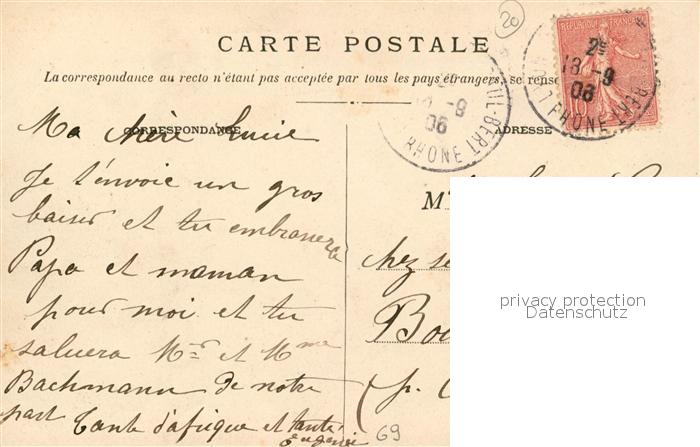 20
CARTE POSTALE
La correspondance au recto n'étant pas acceptée par tous les pays étrangers, se rense
RÉPUBLIQUE FRANÇAISE
2E
18 -9
06
RHONE
UL-BERT
-9
06
RHONE
CORRESPONDANCE
ADRESSE
Ma chère Lucie
Je t'envoie un gros
baiser et tu embrassera
Papa et maman
pour moi et tu
saluera Mr et Mme
Bachmann de notre
part Tante d'afrique et tante
Eugenie
M
chez se
Bo
(p.
69
privacy protection
Datenschutz